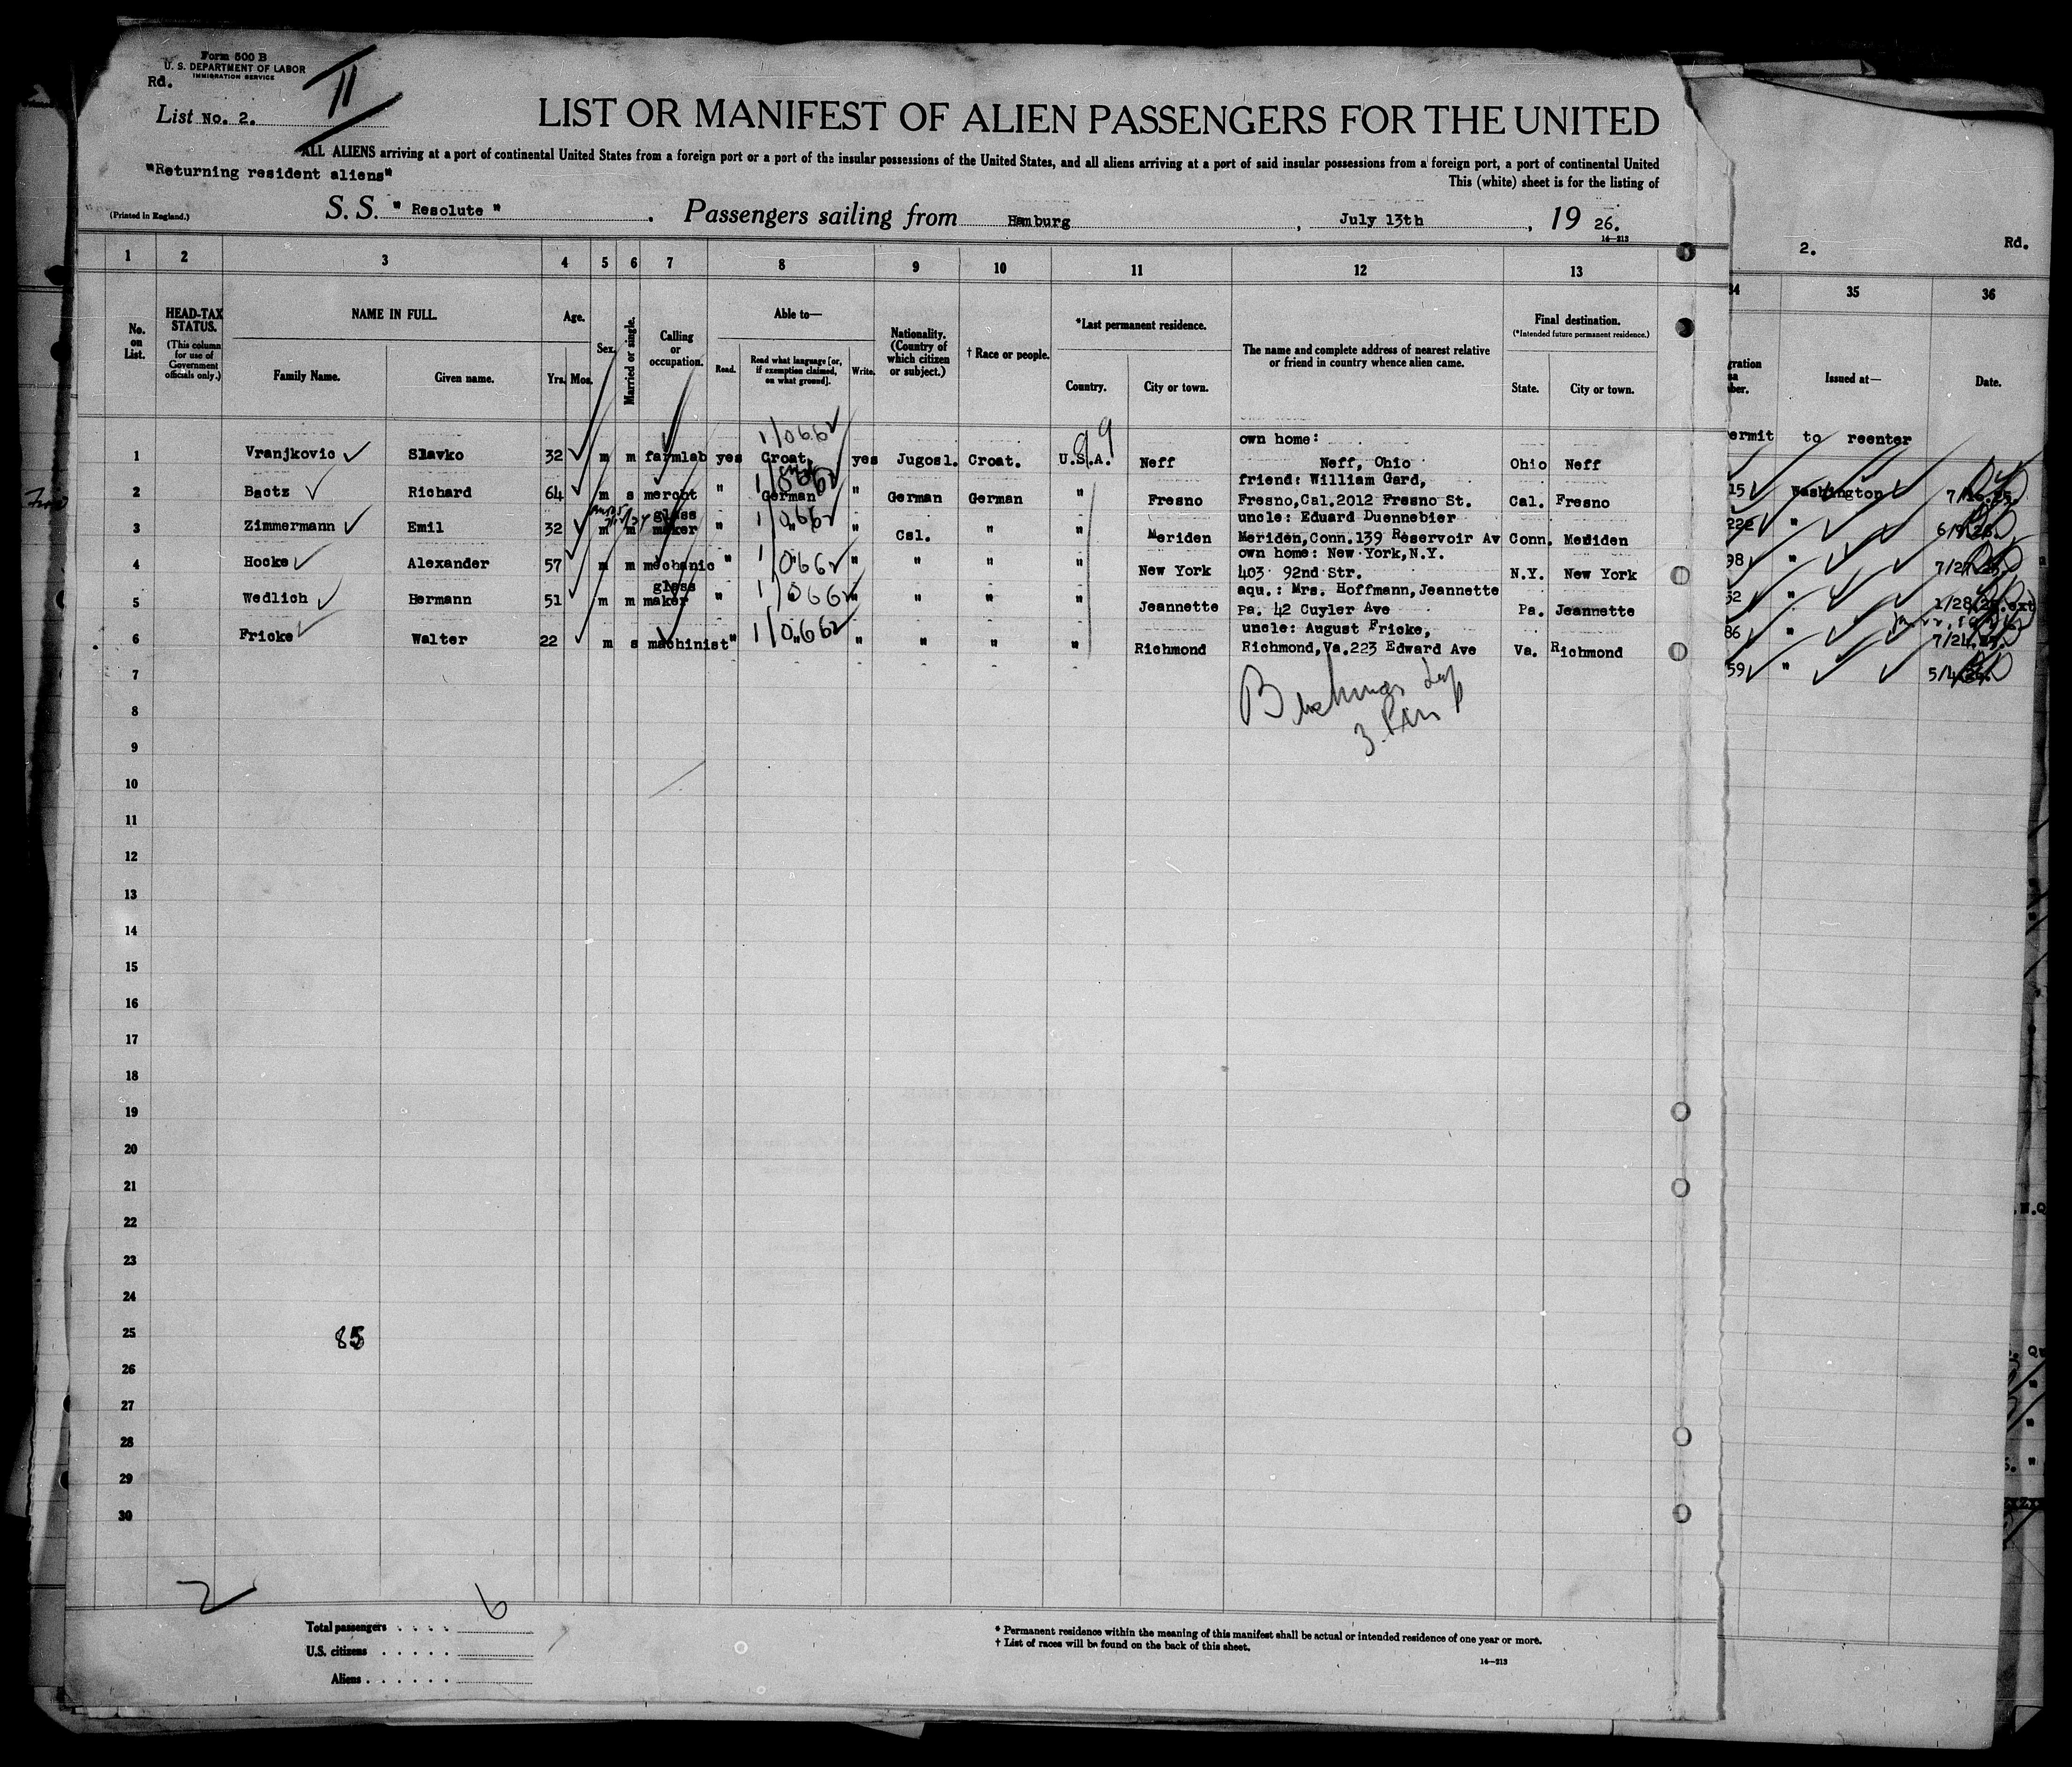 Form 500 B
U. S. DEPARTMENT OF LABOR
IMMIGRATION SERVICE
Rd.
II
List No. 2.
LIST OR MANIFEST OF ALIEN PASSENGERS FOR THE UNITED
ALL ALIENS arriving at a port of continental United States from a foreign port or a port of the insular possessions of the United States, and all aliens arriving at a port of said insular possessions from a foreign port, a port of continental United
"Returning resident aliens"
This (white) sheet is for the listing of
(Printed in England.)
S. S. "Resolute". Passengers sailing from Hamburg, July 13th, 19 26.
14—213
2. Rd.
1 2 3 4 5 6 7 8 9 10 11 12 13 34 35 36
No. on List.
HEAD-TAX STATUS. (This column for use of Government officials only.)
NAME IN FULL.
Family Name. Given name.
Age.
Yrs. Mos.
Sex.
Married or single.
Calling or occupation.
Able to—
Read. Read what language [or, if exemption claimed, on what ground]. Write.
Nationality. (Country of which citizen or subject.)
† Race or people.
*Last permanent residence.
Country. City or town.
The name and complete address of nearest relative or friend in country whence alien came.
Final destination.
(*Intended future permanent residence.)
State. City or town.
Issued at— Date.
ermit to reenter
1 Vranjkovic Slavko 32 m m farmlab yes Croat. yes Jugosl. Croat. U.S.A. Neff own home: Neff, Ohio Ohio Neff
2 Bactz Richard 64 m s mercht " German " German German " Fresno friend: William Gard, Fresno, Cal. 2012 Fresno St. Cal. Fresno
3 Zimmermann Emil 32 m m glass maker " " " Csl. " " Meriden uncle: Eduard Duennebier Meriden, Conn. 139 Reservoir Av Conn. Meriden
4 Hocke Alexander 57 m m mechanic " " " " " New York own home: New York, N.Y. 403 92nd Str. N.Y. New York
5 Wedlich Hermann 51 m m glass maker " " " " " " Jeannette aqu.: Mrs. Hoffmann, Jeannette Pa. 42 Cuyler Ave Pa. Jeannette
6 Fricke Walter 22 m s machinist " " " " " " Richmond uncle: August Fricke, Richmond, Va. 223 Edward Ave Va. Richmond
15 Washington
222 "
98 "
52
86 "
59 "
7
8
9
10
11
12
13
14
15
16
17
18
19
20
21
22
23
24
25 85
26
27
28
29
30
2
Total passengers . . . . 6
U.S. citizens . . . . .
Aliens . . . . . .
* Permanent residence within the meaning of this manifest shall be actual or intended residence of one year or more.
† List of races will be found on the back of this sheet.
14—213